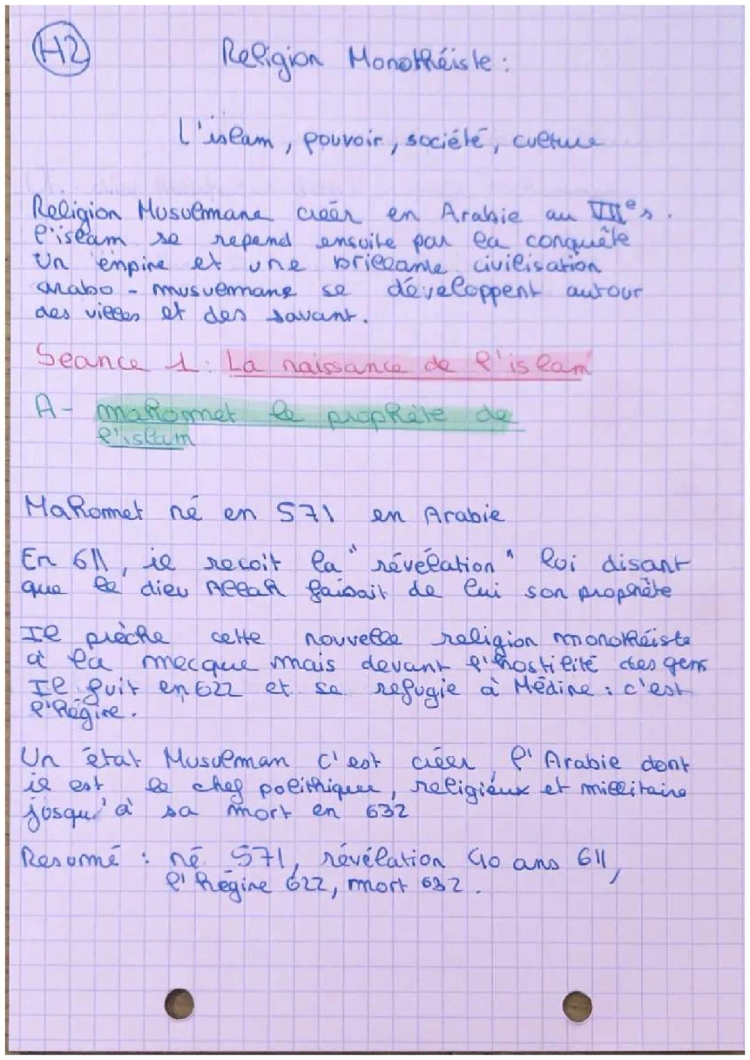 H2
Religion Monothéiste :
L'islam, pouvoir, société, culture
Religion Musulmane créer en Arabie au VIIe s.
l'islam se repend ensuite par la conquête
Un empire et une brillante civilisation
arabo-musulmane se développent autour
des villes et des savant.
Seance 1 : La naissance de l'islam
A- mahomet le prophète de
l'islam
Mahomet né en 571 en Arabie
En 611, il recoit la "révélation" loi disant
que le dieu Allah faisait de lui son prophète
Il prèche cette nouvelle religion monothéiste
à la mecque mais devant l'hostilité des gens
Il fuit en 622 et se refugie à Médine : c'est
l'hégire.
Un état Musulman c'est créer l'Arabie dont
il est le chef polithique, religieux et millitaire
jusqu'à sa mort en 632
Resumé : né 571, révélation 40 ans 611,
l'hégire 622, mort 632.